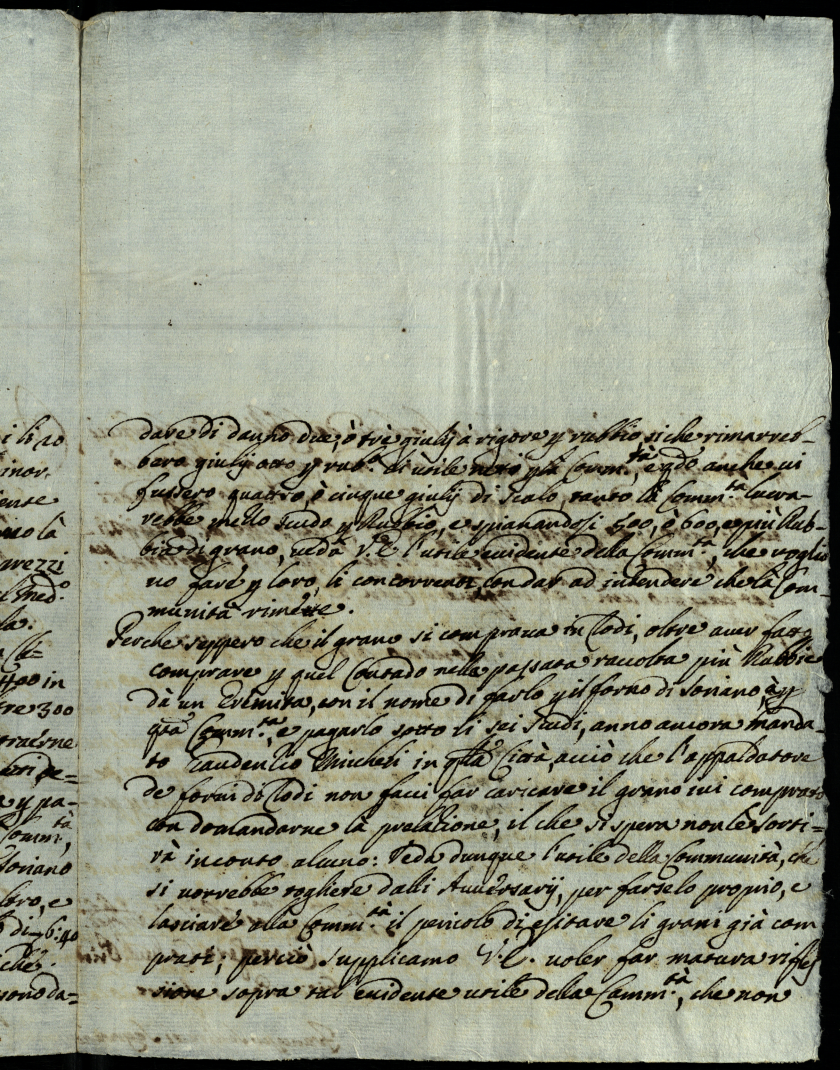 i li 20
inor-
iente
prezzi
il med.º
la.
400 in
tre 300
pe=
a y pa-
Comm.tà,
Soriano
loro, e
di 6:40
che
sono da=
dare di danno due, ò trè giulij à rigore y rubbio, si che rimarreb-
bero giulij otto y rub.º di utile netto y la Comm.tà, e qdo anche vi
fussero quattro, ò cinque giulij di scalo, tanto la Comm.tà lucra-
rebbe mezzo scudo y Rubbio, e spianandosi 500, ò 600, e più Rub-
bia di grano, vedà V.E. l'utile evidente della Comm.tà, che voglio
no fare y loro, li concorrenti, con dar ad intendere che la Com-
munità rimette.
Perche seppero che il grano si comprava in Todi, oltre aver fatto
comprare y quel Contado nella passata raccolta più Rubbie
dà un Eremita, con il nome di farlo y il forno di Soriano, ò y
qta Comm.tà, e pagarlo sotto li sei scudi, anno ancora manda-
to Gaudenzio Micheli in qlla Città, acciò che l'appaldatore
de forni di Todi non facci far caricare il grano ivi comprato
con domandarne la prelazione, il che si spera non le sorti=
rà in conto alcuno: Veda dunque l'utile della Communità, che
si vorrebbe togliere dalli Avversarij, per farselo proprio, e
lasciare alla Comm.tà il pericolo di esitare li grani già com
prati; perciò supplicamo V.E. voler far matura rifles
sione sopra tal evidente utile della Comm.tà, che non